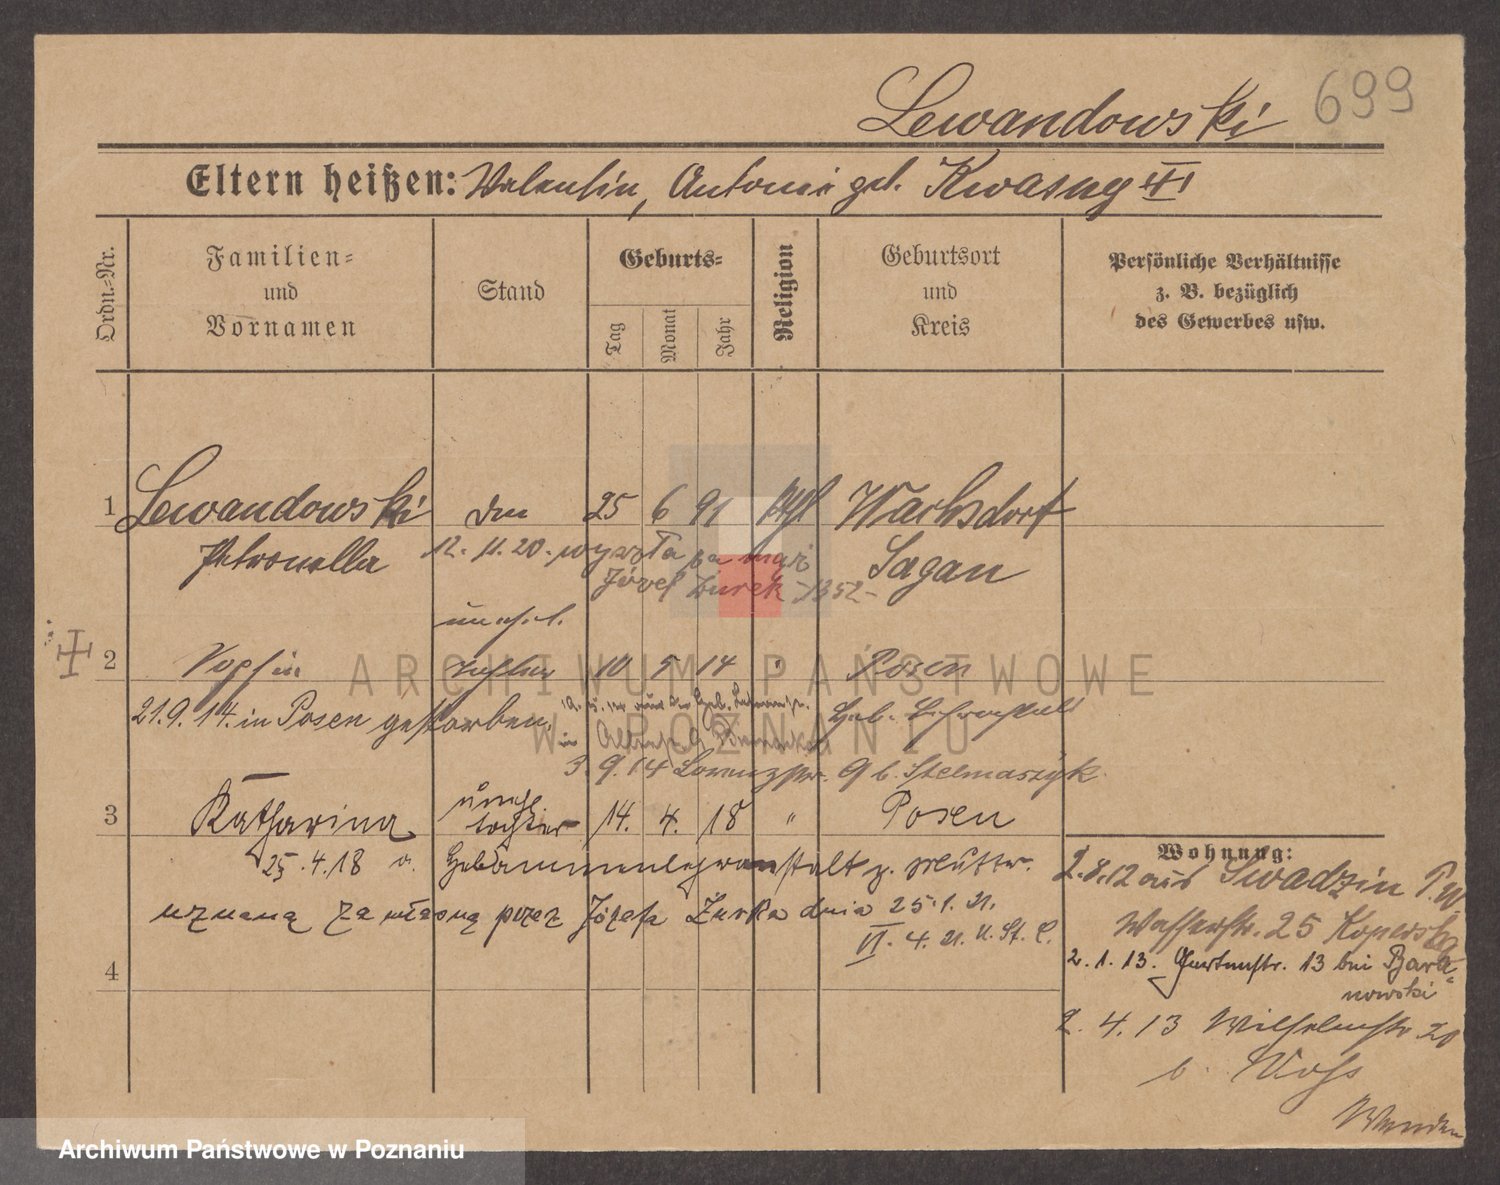 699
Lewandowski
Eltern heißen: Valentin, Antonie geb. Kwasny II
Ordn.-Nr.
Familien-
und
Vornamen
Stand
Geburts-
Tag
Monat
Jahr
Religion
Geburtsort
und
Kreis
Persönliche Verhältnisse
z. B. bezüglich
des Gewerbes usw.
1 Lewandowski 25 6 91 kath Wachsdorf
Petronella Sagan
12. 11. 20. wyszła za mąż
Józef Żurek
unehel.
2 Sofia Tochter 10 5 14 " Posen
21.9.14. in Posen gestorben. Heb. Lehranstalt
in
3.9.14 Lorenzstr. 9 b. Stelmaszyk
unehe.
3 Katharina Tochter 14. 4. 18 " Posen
25.4.18 v. Hebammenlehranstalt z. Mutter.
uznana za własną przez Józefa Żurka dnia 25.1.21.
VI. 4. 21. U. St. C.
4
Wohnung:
2.8.12 aus Swadzin P.W.
Wasserstr. 25 Koperska
2. 1. 13. Gartenstr. 13 bei Bara-
nowski
2. 4. 13 Wilhelmstr. 20
b. Voss
Wenden
ARCHIWUM PAŃSTWOWE
W POZNANIU
Archiwum Państwowe w Poznaniu